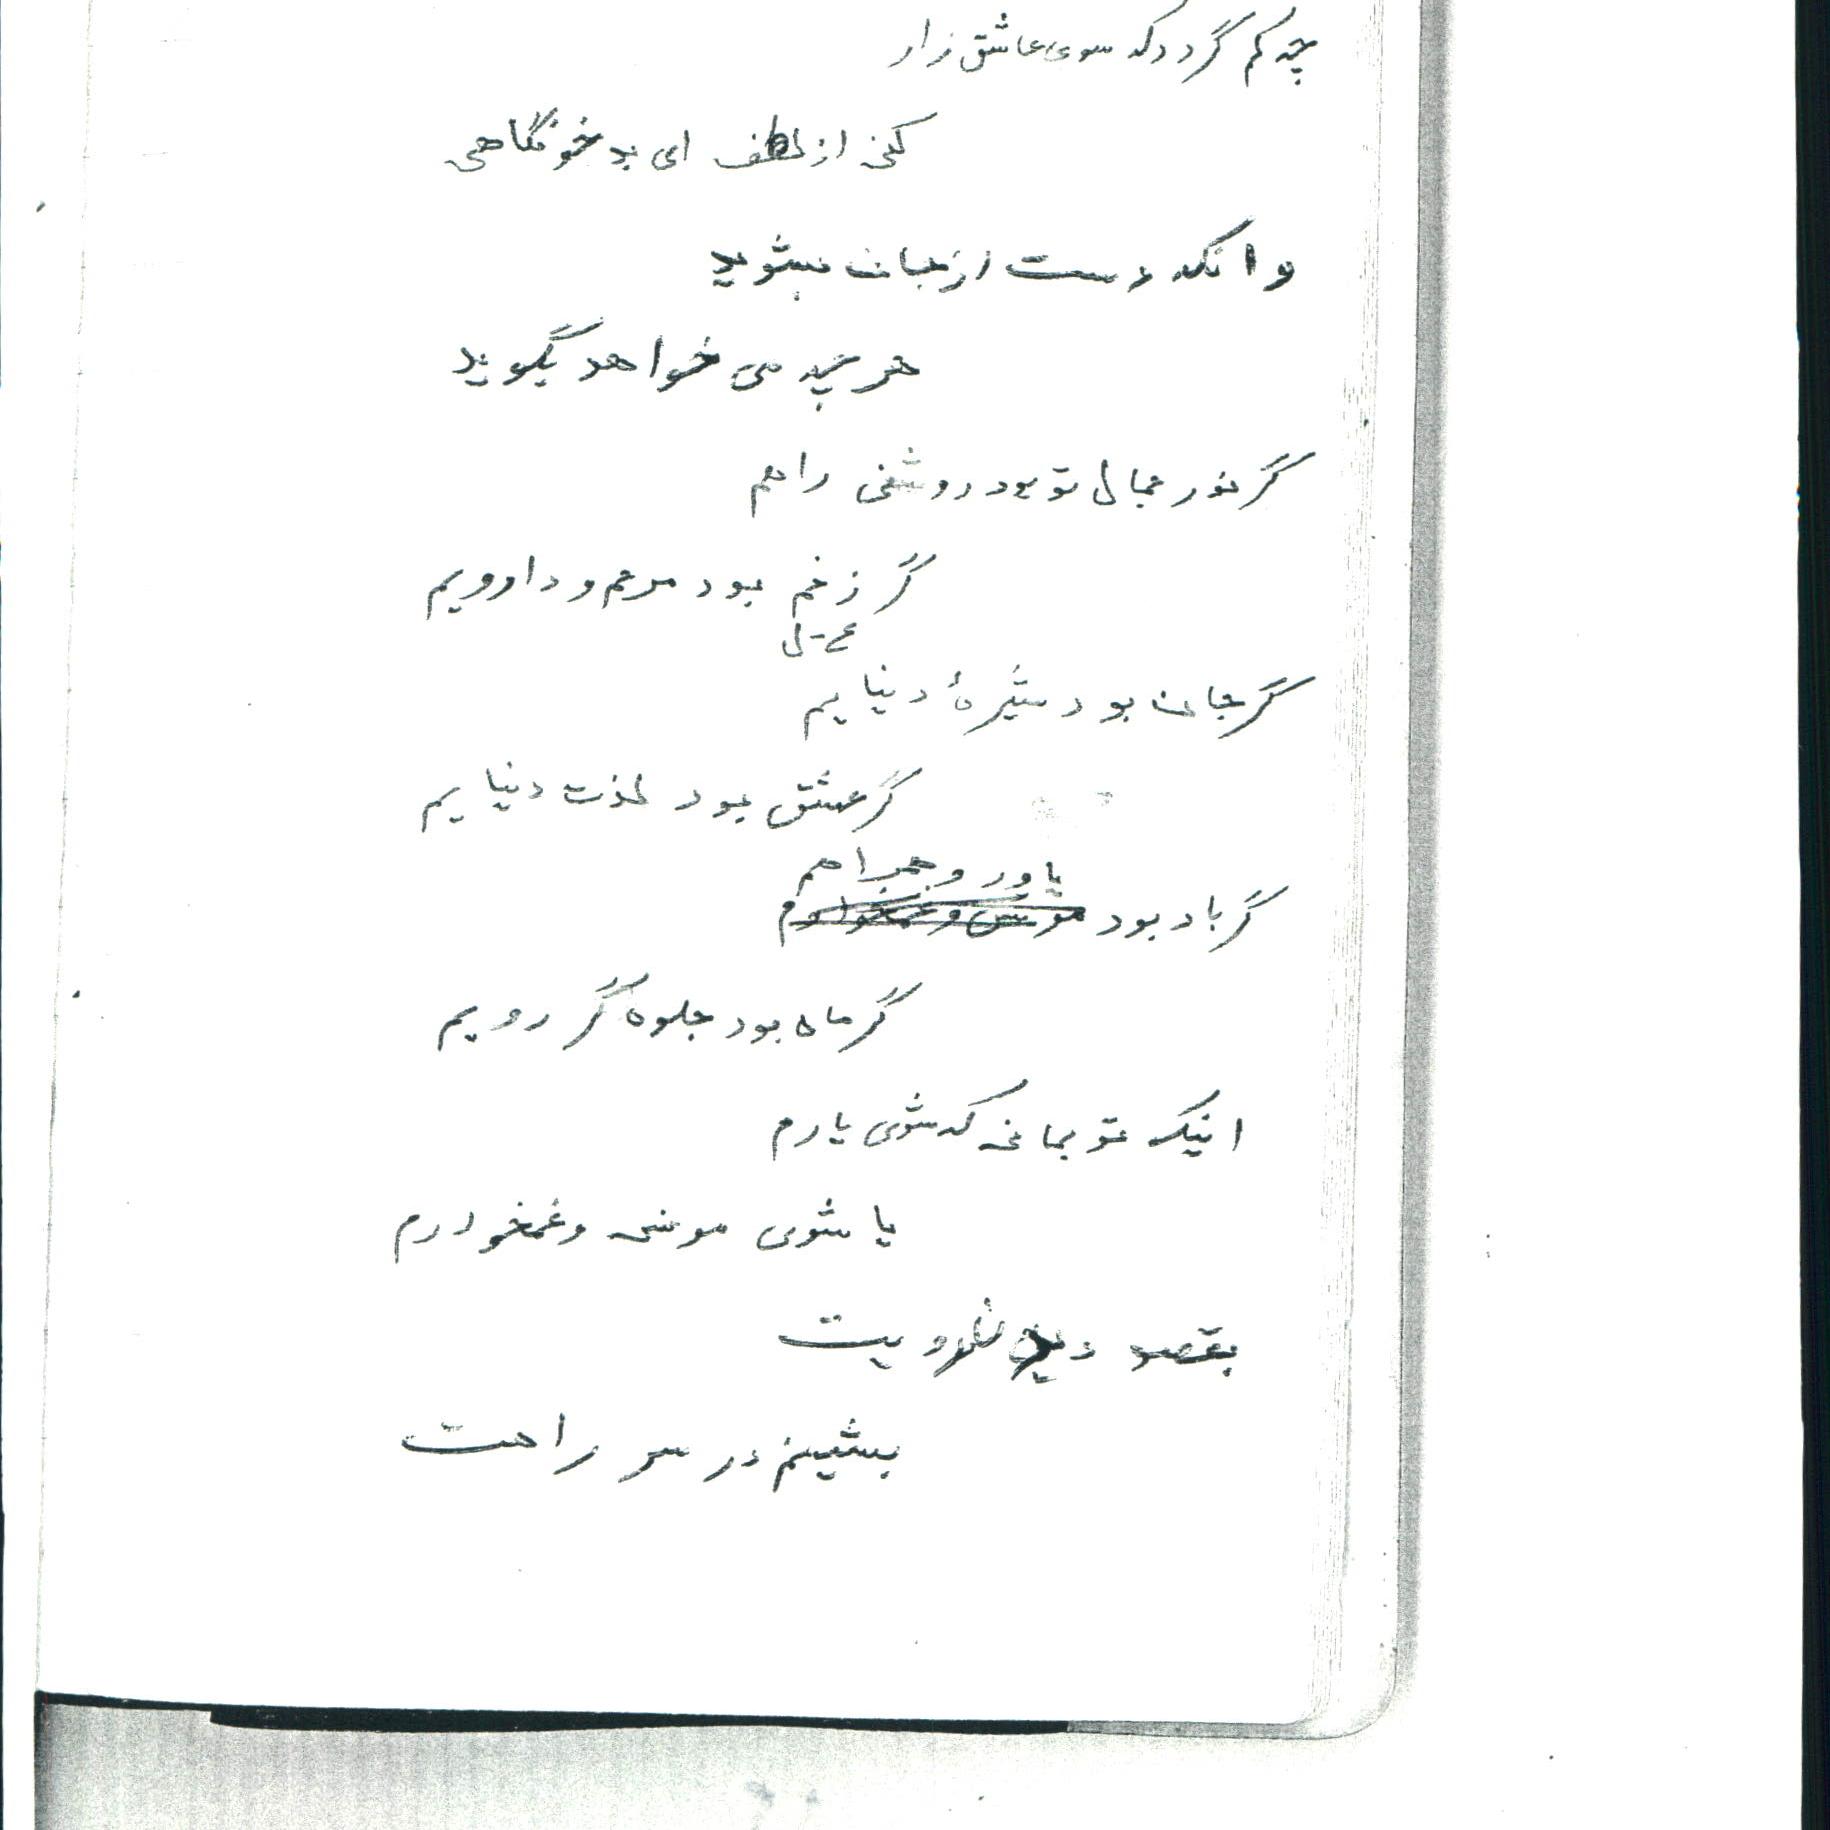 چه کم گردد که سوی عاشق زار
کنی از لطف ای بدخو نگاهی
وانکه دست از جان بشوید
هر چه می خواهد بگوید
گر نور جمال تو بود روشنی راهم
گر زخم بود مرهم و دارویم
گر جان بود شیرهٔ دنیایم
گر عشق بود لذت دنیایم
یاور و همراهم
گر باد بود مونس و غمخوارم
گر ماه بود جلوه گر رویم
اینک تو بمان که شوی یارم
یا شوی مونس و غمخوارم
بقصد رویت
بنشینم در سر راهت